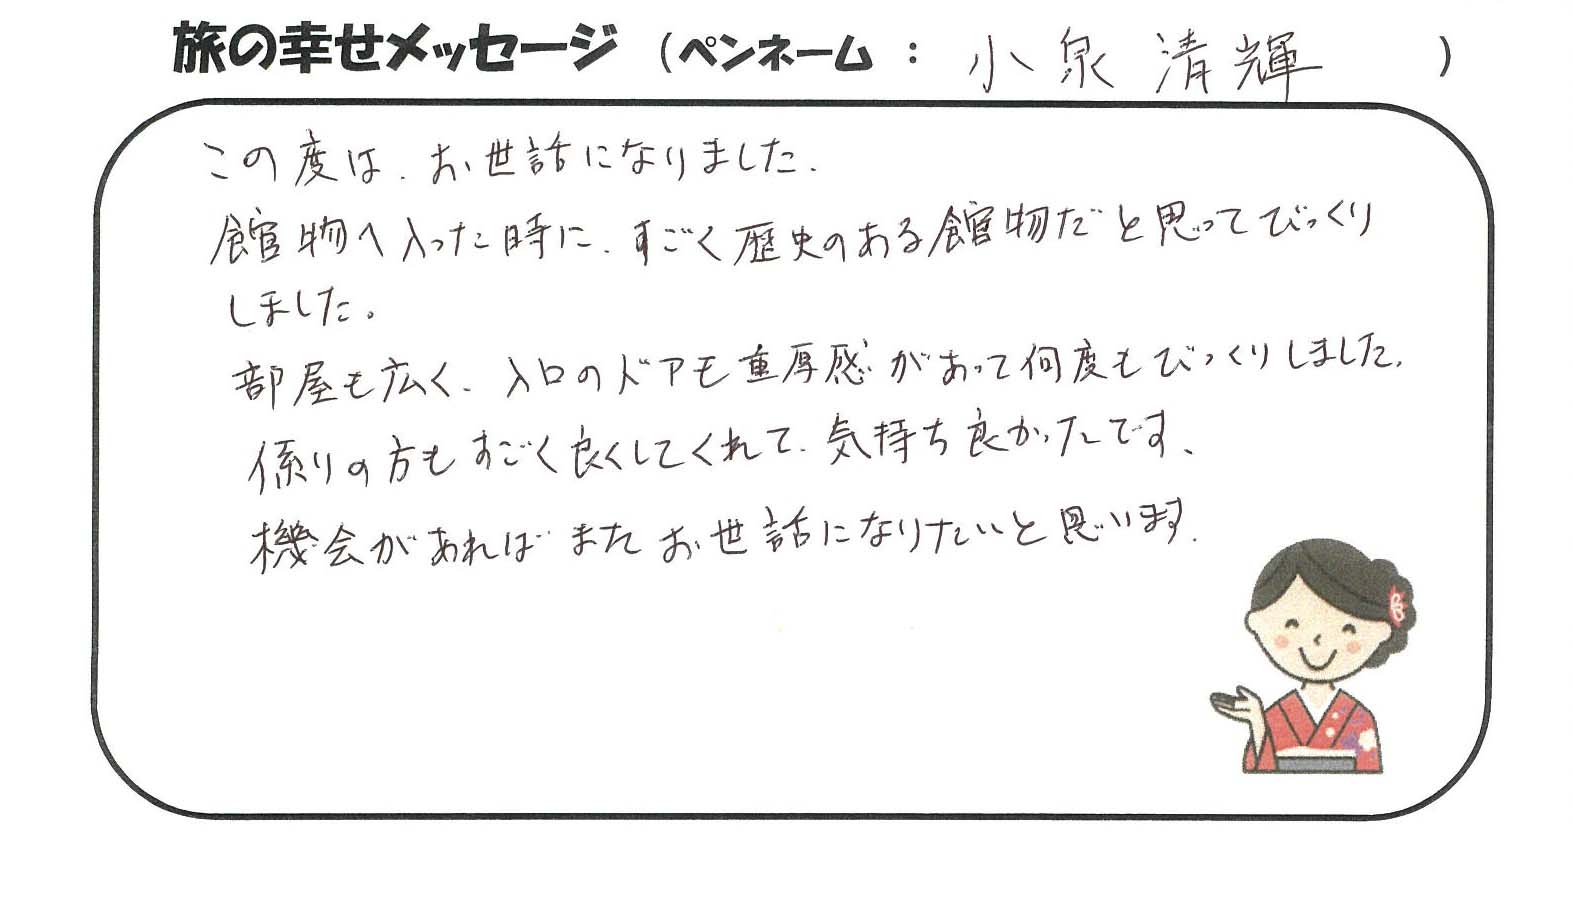 旅の幸せメッセージ (ペンネーム : 小泉 清輝 )
この度は、お世話になりました.
館物へ入った時に、すごく歴史のある館物だと思ってびっくり
しました。
部屋も広く、入口のドアも重厚感があって何度もびっくりしました.
係りの方もすごく良くしてくれて、気持ち良かったです、
機会があればまたお世話になりたいと思います.